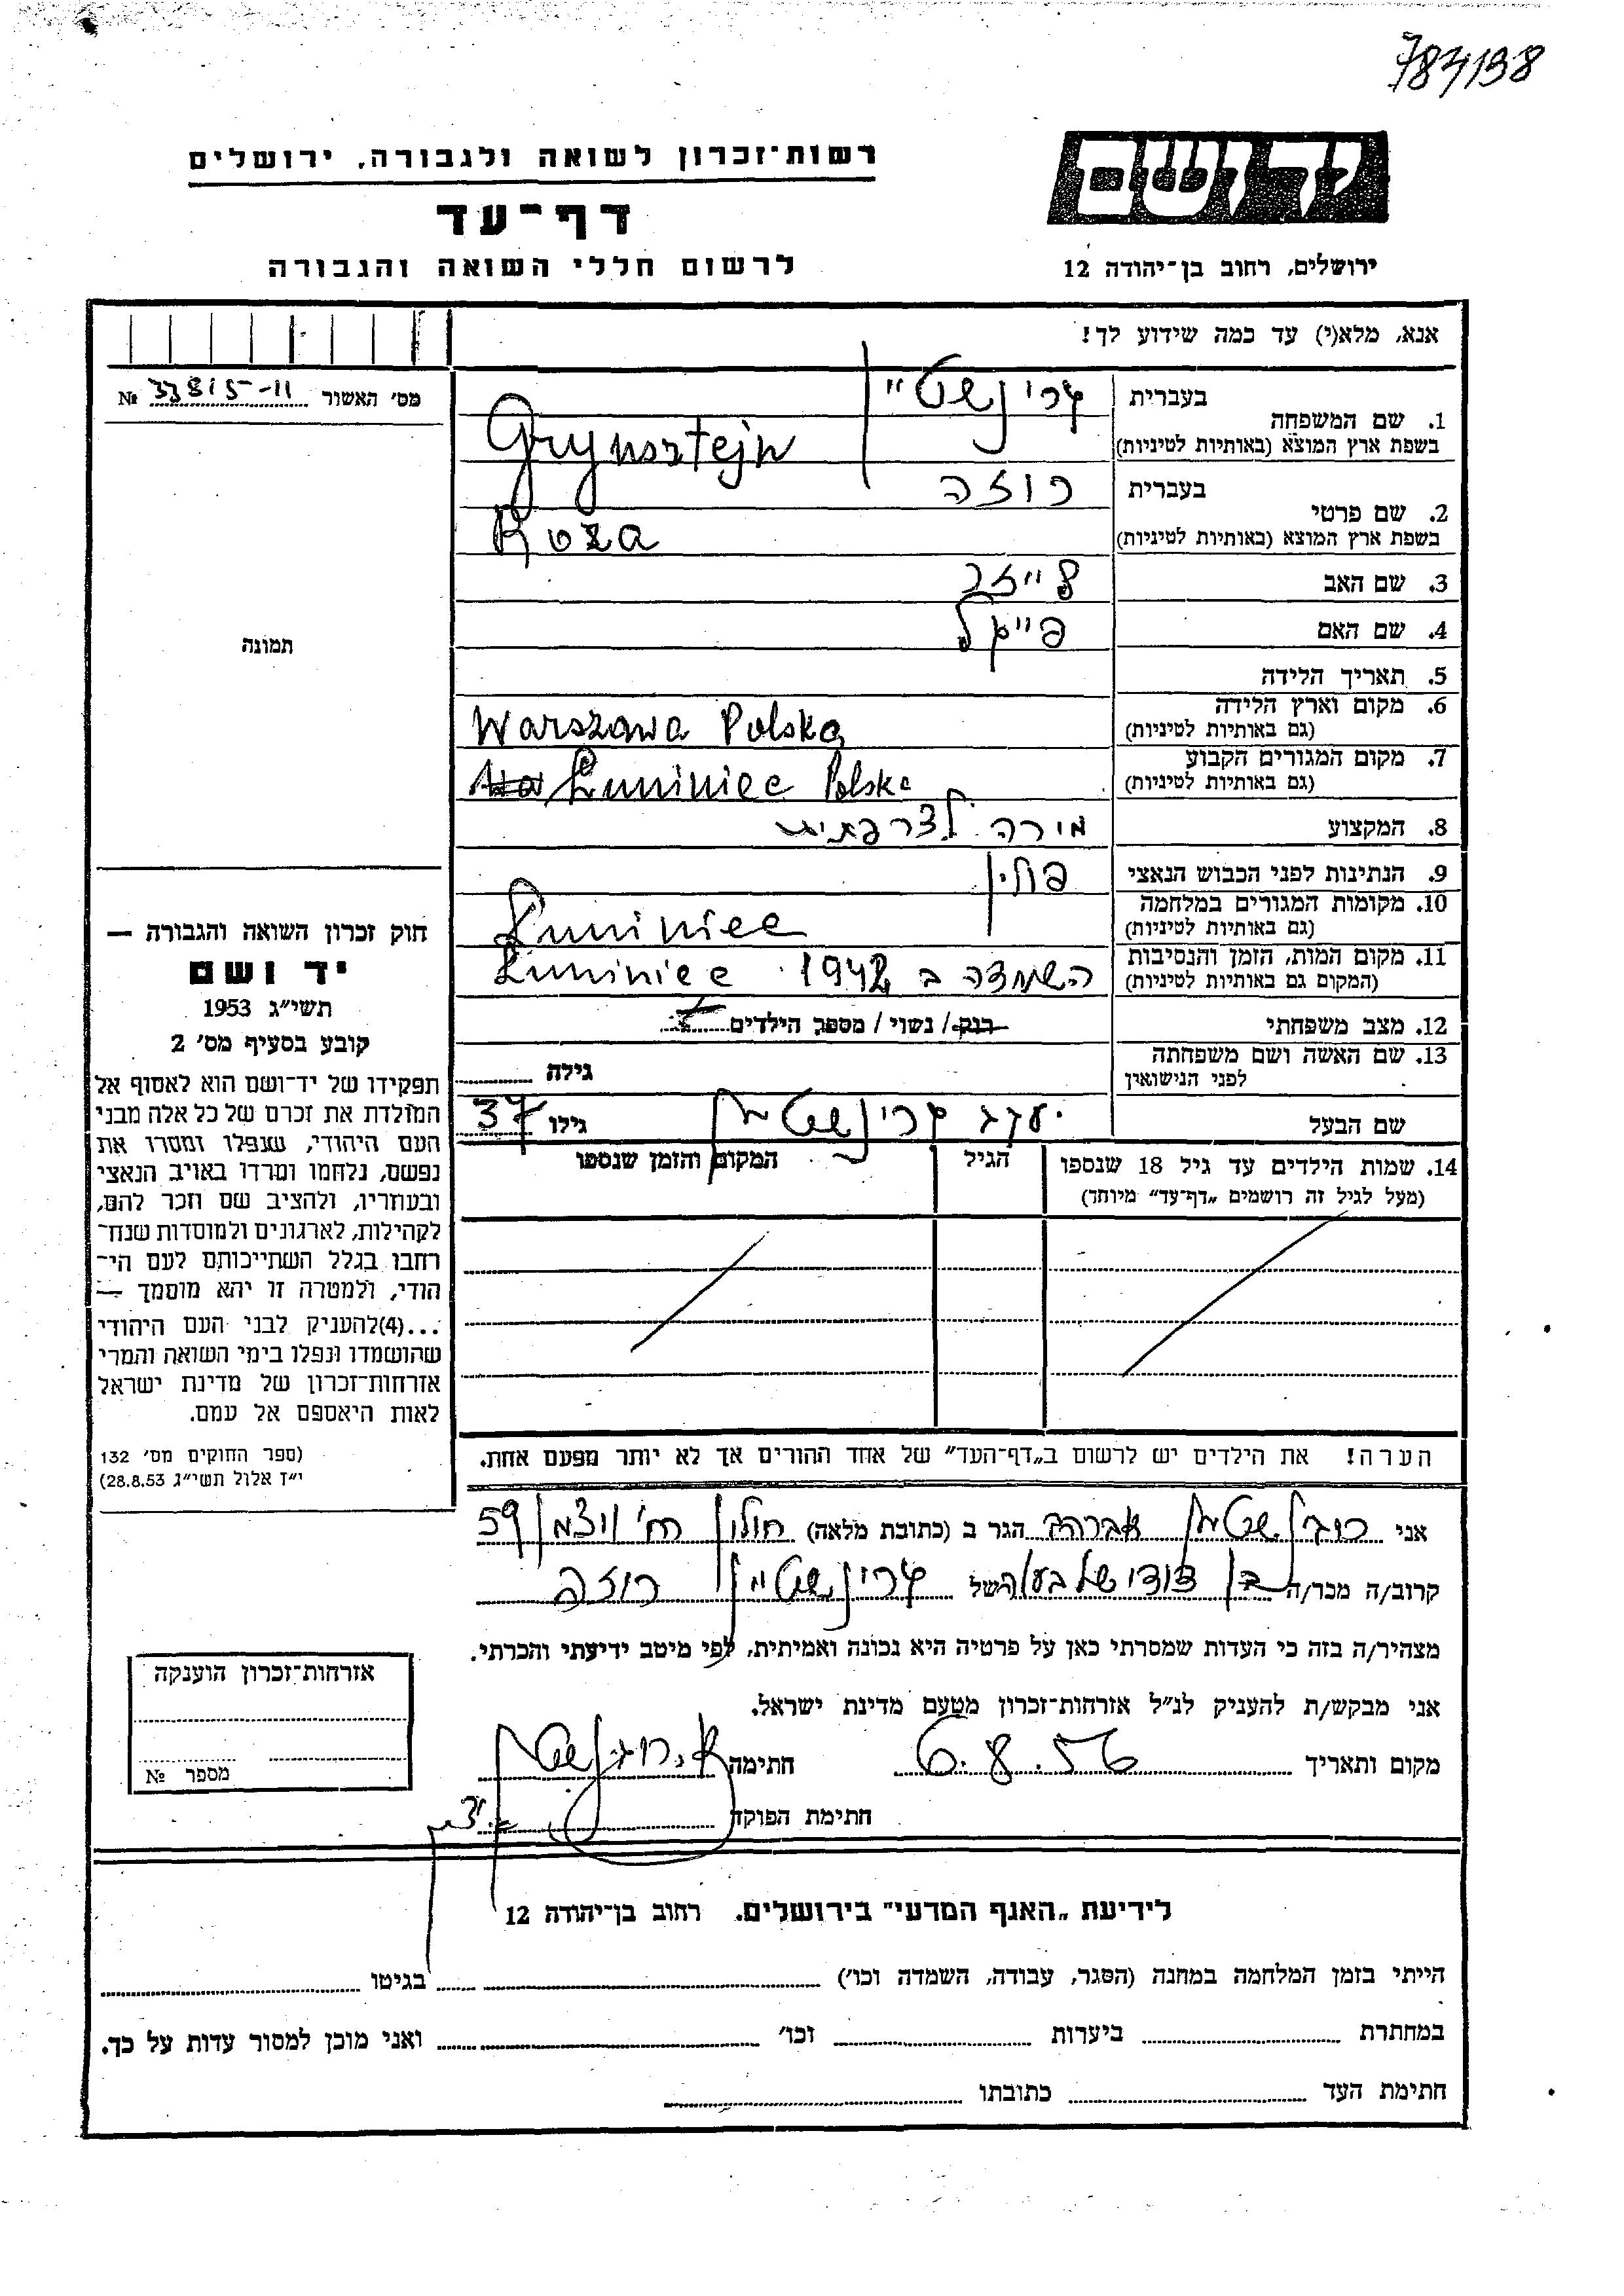 783138
יד ושם
רשות־זכרון לשואה ולגבורה, ירושלים
דף־עד
לרשום חללי השואה והגבורה
ירושלים, רחוב בן־יהודה 12
אנא, מלא(י) עד כמה שידוע לך!
מס׳ האשור 33815-11 №
תמונה
1. שם המשפחה
בעברית גרינשטיין
בשפת ארץ המוצא (באותיות לטיניות) Grynsztejn
2. שם פרטי
בעברית רוזה
בשפת ארץ המוצא (באותיות לטיניות) Roza
3. שם האב
4. שם האם פייגל
5. תאריך הלידה
6. מקום וארץ הלידה
(גם באותיות לטיניות) Warszawa Polska
7. מקום המגורים הקבוע
(גם באותיות לטיניות) Łuniniec Polska
8. המקצוע מורה לצרפתית
9. הנתינות לפני הכבוש הנאצי פולין
10. מקומות המגורים במלחמה
(גם באותיות לטיניות) Łuniniec
11. מקום המות, הזמן והנסיבות
(המקום גם באותיות לטיניות) השמדה ב 1942 Łuniniec
12. מצב משפחתי רווק / נשוי / מספר הילדים
13. שם האשה ושם משפחתה
לפני הנישואין גילה
שם הבעל יעקב גרינשטיין גילו 37
14. שמות הילדים עד גיל 18 שנספו הגיל המקום והזמן שנספו
(מעל לגיל זה רושמים „דף־עד״ מיוחד)
הערה! את הילדים יש לרשום ב„דף־העד״ של אחד ההורים אך לא יותר מפעם אחת.
חוק זכרון השואה והגבורה —
יד ושם
תשי״ג 1953
קובע בסעיף מס׳ 2
תפקידו של יד־ושם הוא לאסוף אל
המולדת את זכרם של כל אלה מבני
העם היהודי, שנפלו ומסרו את
נפשם, נלחמו ומרדו באויב הנאצי
ובעוזריו, ולהציב שם וזכר להם,
לקהילות, לארגונים ולמוסדות שנח־
רבו בגלל השתייכותם לעם הי־
הודי, ולמטרה זו יהא מוסמך —
...(4) להעניק לבני העם היהודי
שהושמדו ונפלו בימי השואה והמרי
אזרחות־זכרון של מדינת ישראל
לאות היאספם אל עמם.
(ספר החוקים מס׳ 132
י״ז אלול תשי״ג 28.8.53)
אני רובינשטיין אברהם הגר ב (כתובת מלאה) חולון רח׳ ויצמן 59
קרוב/ה מכר/ה בן דודו של בעלה של גרינשטיין רוזה
מצהיר/ה בזה כי העדות שמסרתי כאן על פרטיה היא נכונה ואמיתית, לפי מיטב ידיעתי והכרתי.
אני מבקש/ת להעניק לנ״ל אזרחות־זכרון מטעם מדינת ישראל.
מקום ותאריך 6.8.56 חתימה א. רובינשטיין
חתימת הפוקד
אזרחות־זכרון הוענקה
מספר №
לידיעת „האגף המדעי״ בירושלים. רחוב בן־יהודה 12
הייתי בזמן המלחמה במחנה (הסגר, עבודה, השמדה וכו׳) בגיטו
במחתרת ביערות וכו׳ ואני מוכן למסור עדות על כך.
חתימת העד כתובתו